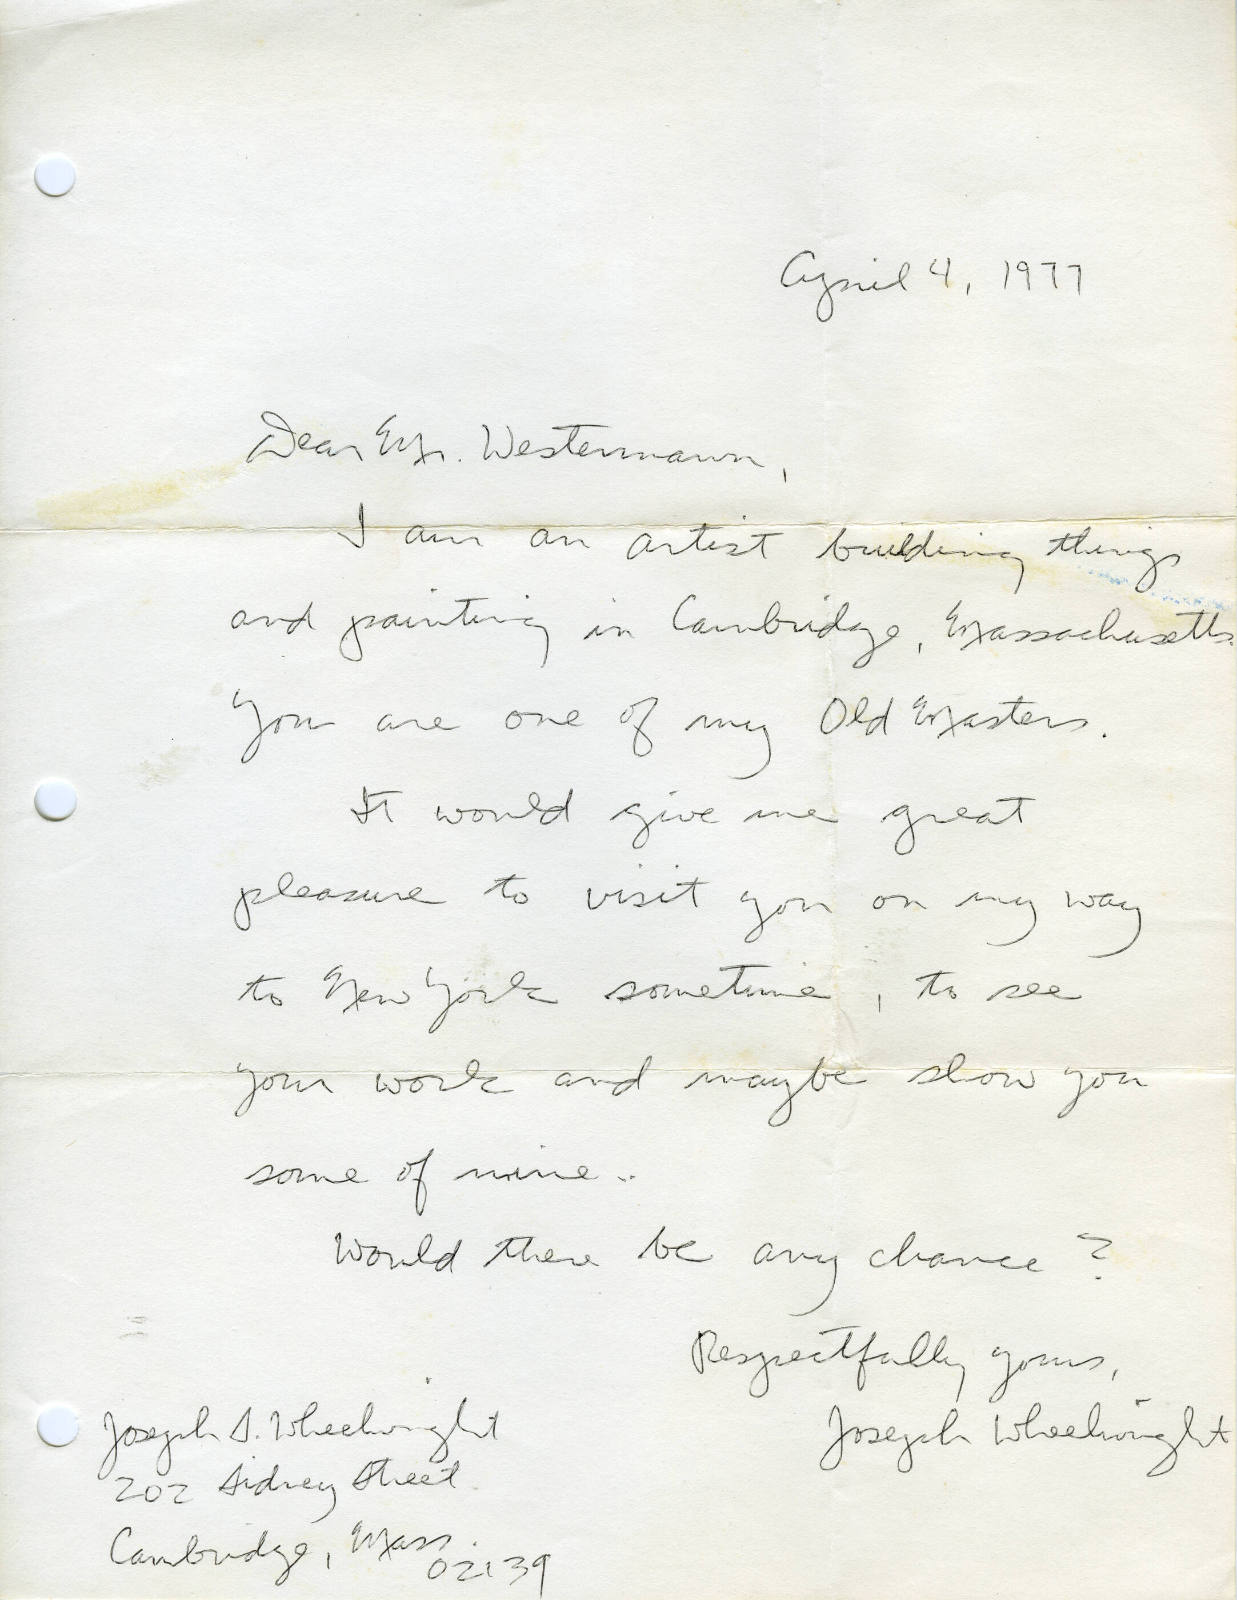 April 4, 1977
Dear Mr. Westermann,
I am an artist building things
and painting in Cambridge, Massachusetts.
You are one of my Old Masters.
It would give me great
pleasure to visit you on my way
to New York sometime, to see
your work and maybe show you
some of mine..
Would there be any chance?
Respectfully yours,
Joseph Wheelwright
Joseph S. Wheelwright
202 Sidney Street
Cambridge, Mass.
02139